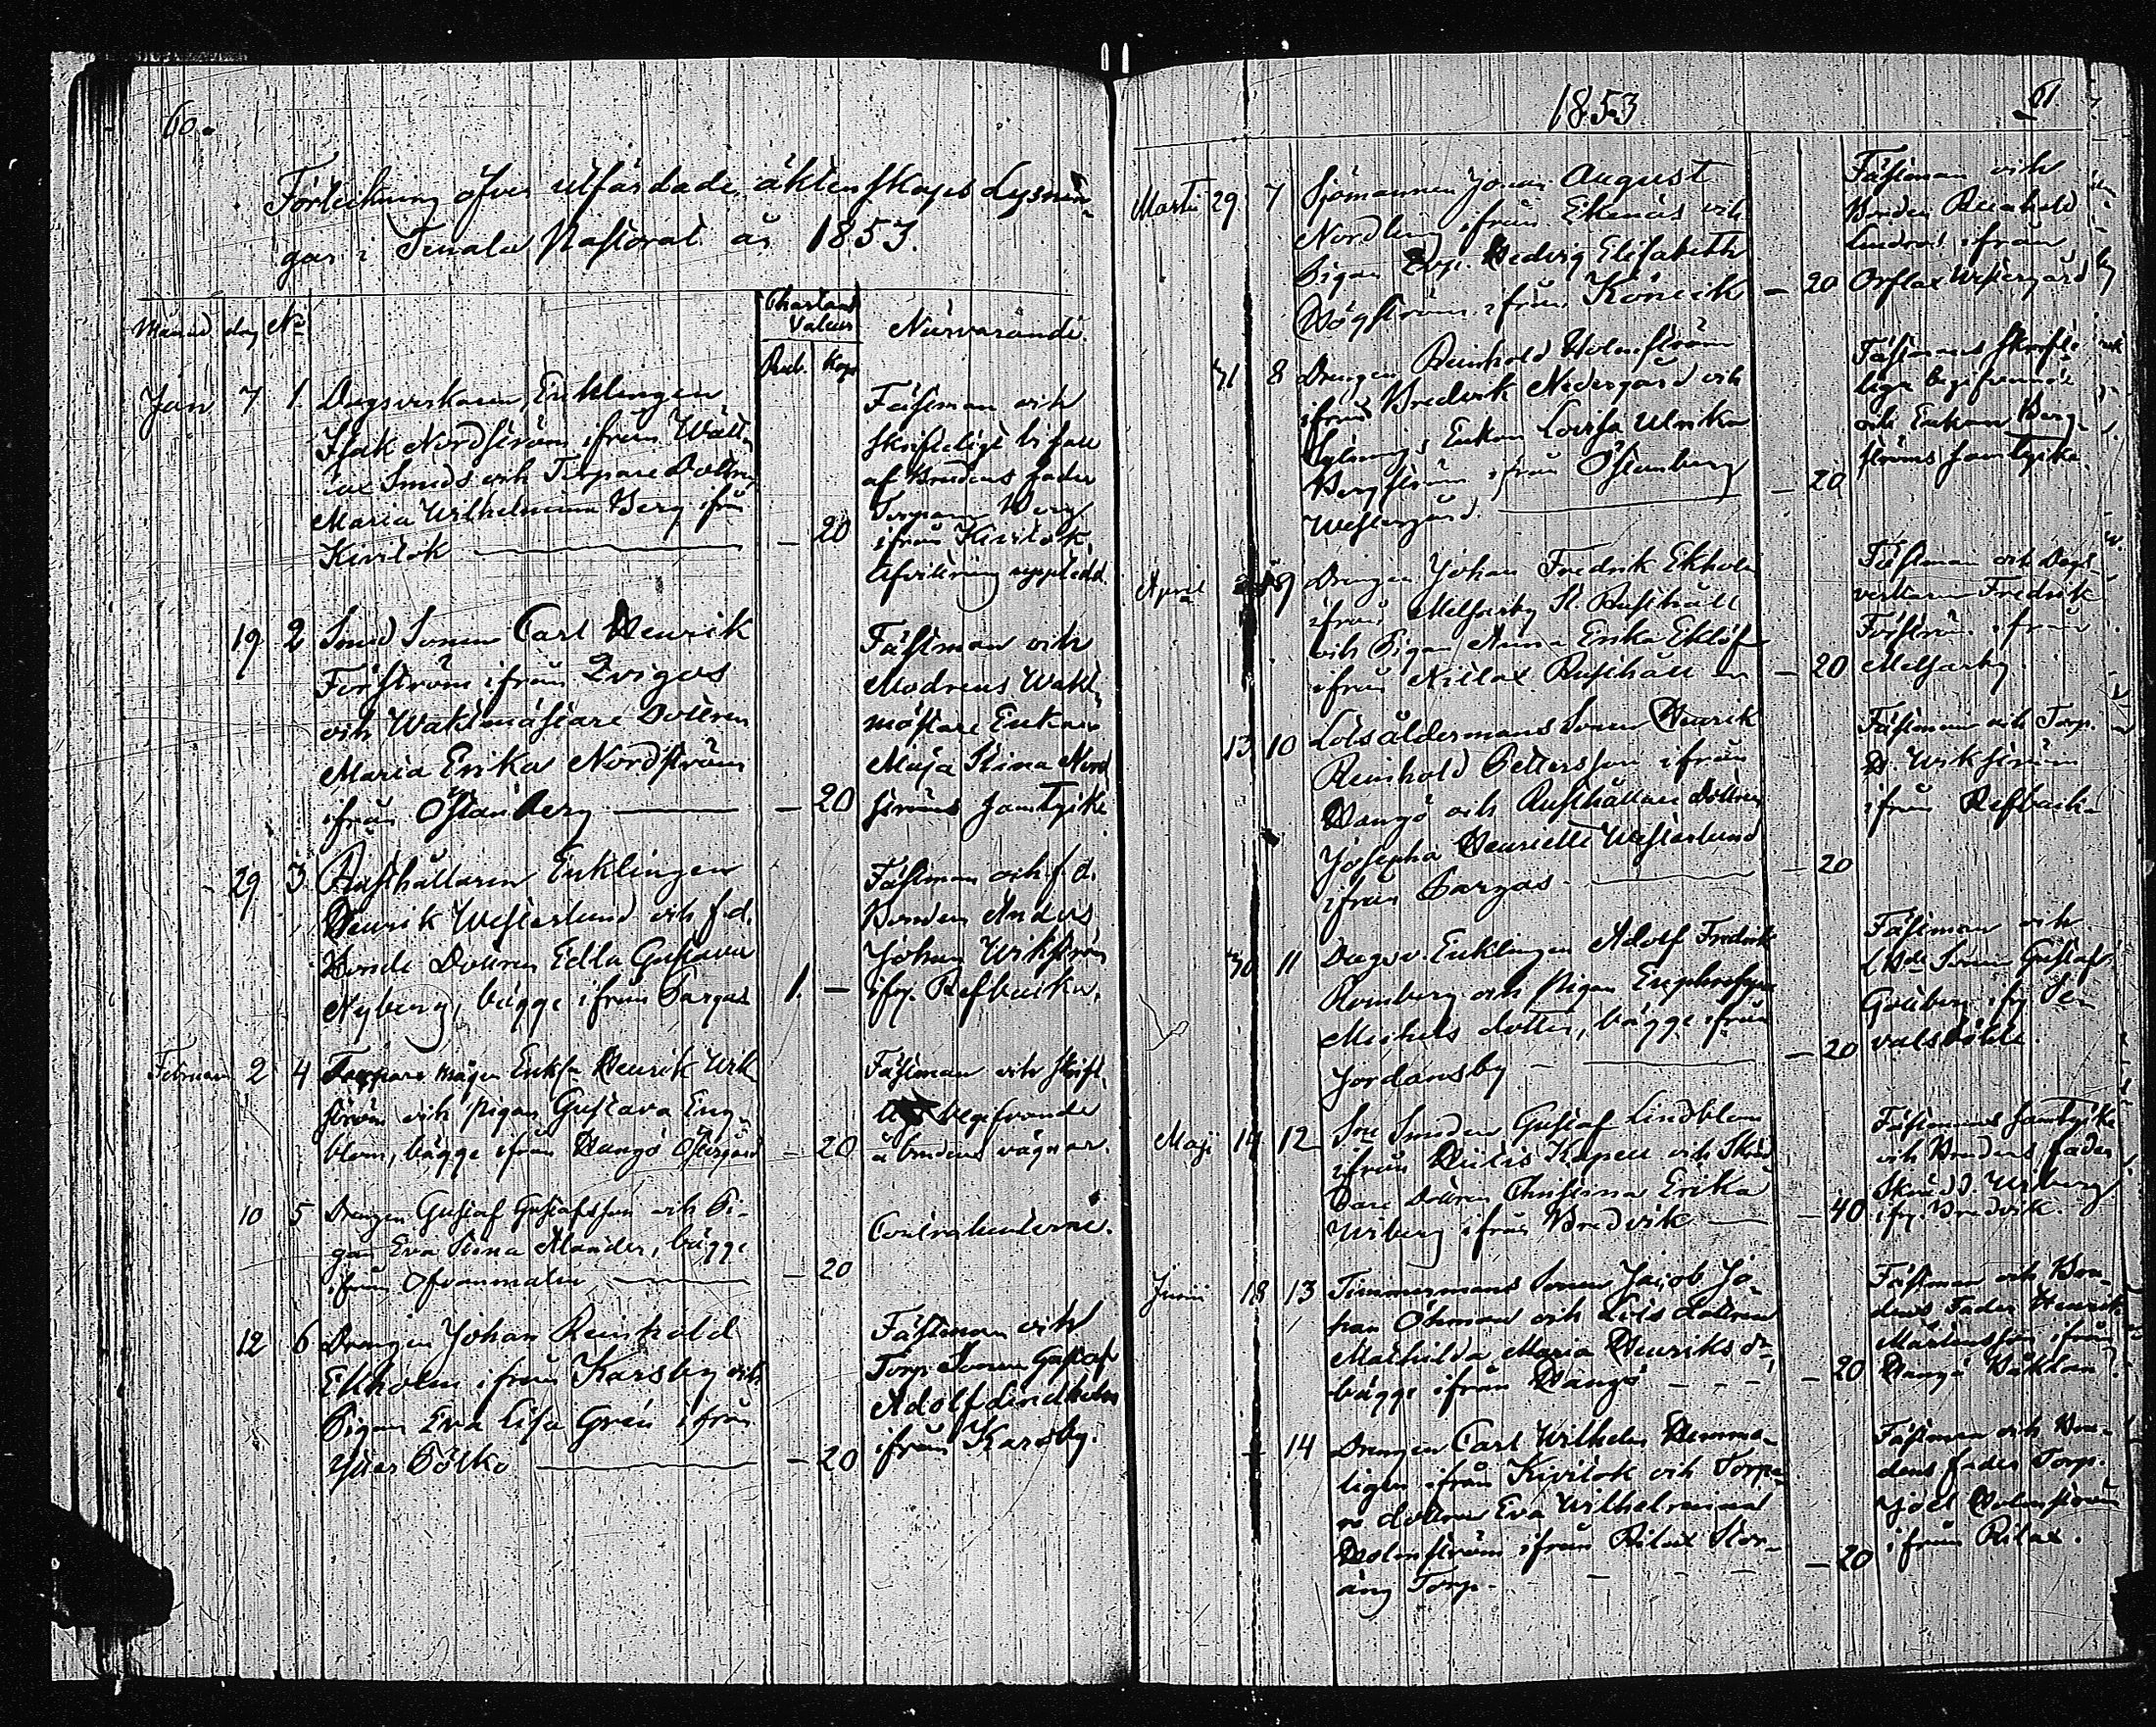 60.
Förteckning öfver utfärdade äktenskaps Lysnin-
gar i Tenala Pastorat år 1853.
Månad dag No
Chartæ
Valeur
Rub. Kop.
Närvarande.
Jan 7 1. Dagsverkaren, Enklingen
Isak Nordström ifrån
Smeds och Torpare Dottren
Maria Wilhelmina Berg ifrån
Kivitok — 20
Fästman och
skrifteligt bifall
af Brudens fader
Torparen Berg
ifrån Kivitok.
Afvittring uppvist
19 2 Smed Sonen Carl Henrik
Forström ifrån
och Waktmästare Dottren
Maria Erika Nordström
ifrån Östanberg — 20
Fästman och
Modrens Wakt-
mästare Enkan
Maja Stina Nord
ströms samtycke
29 3 Rusthållaren Enklingen
Henrik Westerlund och f.d.
Bonde Dottren Edla Gustava
Nyberg, bägge ifrån Pargas 1. —
Fästman och f.d.
Bonden Anders
Johan Wikström
ifrn. Refbacka.
Februari 2 4 Torpare mågen Enkl. Henrik Wik-
ström och pigan Gustava Eng-
blom, bägge ifrån Hangö Östergård — 20
Fästman och skrift-
begifvande
å brudens vägnar.
10 5 Drengen Gustaf Gustafsson och Pi-
gan Eva Stina Alander, bägge
ifrån Ofvanmalm — 20
Contrahenterne.
12 6 Drengen Johan Reinhold
Ekholm ifrån Karsby och
Pigan Eva Lisa Grén ifrån
Ytter Bölko — 20
Fästman och
Torp. Sonen Gustaf
Adolf Lindholm
ifrån Karsby.
1853.
61
Martii 29 7 Sjömannen Johan August
Nordling ifrån Ekenäs och
Pigan Hedvig Elisabeth
Högström ifrån — 20
Fästman och
Bonden Reinhold
Lindroos ifrån
Orslax Westergård
31 8 Drengen Reinhold Holmström
ifrån Bredvik Nedergård och
Enkan Lovisa Ulrika
Bergström ifrån Östanberg
Westergård. — 20
Fästmans skrifte-
liga begifvande
och Enkan Berg-
ströms samtycke.
April 9 Drengen Johan Fredrik Ekholm
ifrån Melsarby St. Rusthåll
och Pigan Anna Erika Eklöf
ifrån Rusthåll — 20
Fästman och Dags-
verkaren Fredrik
Forström ifrån
Melsarby.
13 10 Lotsåldermans Sonen Henrik
Reinhold Pettersson ifrån
Hangö och Rusthållare Dottren
Josepha Henriette Westerlund
ifrån Pargas — 20
Fästman och Torp.
H. Wikström
ifrån Refbacka
30 11 Dagsv. Enklingen Adolf Fredrik
Romberg och Pigan Euphrosyne
Michels dotter, bägge ifrån
Jordansby — 20
Fästman och
Sonen Gustaf
ifrn
Maji 14 12 Smeden Gustaf Lindblom
ifrån Hiitis Kapell och Skräd-
dare Dottren Christina Erika
Wiberg ifrån Bredvik — 40
Fästmans samtycke
och Brudens fader
Skrädd. Wiberg
ifrn. Bredvik.
Junii 18 13 Timmermans Sonen Jacob Jo-
han Öhman och Lots dottren
Mathilda Maria Henriksdr,
bägge ifrån Hangö — 20
Fästman och Bru-
dens Fader Henrik
Mårtensson ifrån
Hangö
14 Drengen Carl Wilhelm Hemma-
ligen ifrån Kivitok och Torpa-
re dottren Eva Wilhelmina
Holmström ifrån Rilax Stor-
äng Torp. — 20
Fästman och Bru-
dens fader Torp.
Joel Holmström
ifrån Rilax.